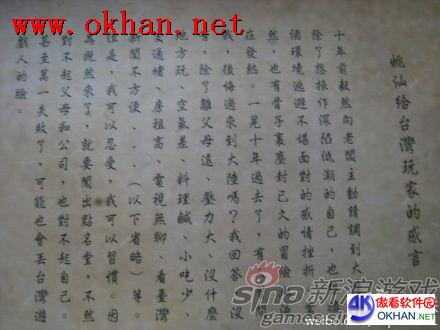 www.okhan.net
姚仙給台灣玩家的感言
十年前毅然向老闆主動請調到大
除了想振作深陷低潮的自己，也
個環境逃避不堪面對的感情挫折
然，也有骨子裏塵封已久的冒險
在發酵。一晃十年過去了，有
我，後悔過來到大陸嗎？我回答沒
，除了離父母遠、壓力大、沒什麼
地方玩、空氣差、料理鹹、小吃少
交通堵、房租高、電視無聊、看臺灣
新聞不方便....（以下省略）等。
但是，我可以忍受，我可以習慣，因
為既然來了，就要闖出點名堂，不然
對不起父母和公司，也對不起自己。
甚至萬一失敗了，可能也會丟台灣遊
戲人的臉。
sina新浪游戏
weibo
4K 傲看软件园
okhan.net